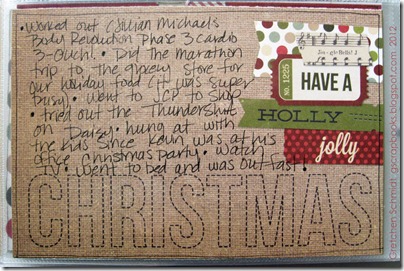 •Worked out (Jillian Michaels
Body Revolution Phase 3 cardio
3-Ouch!. • Did the marathon
trip to the grocery store for
our holiday food (it was super
busy). • Went to JCP to shop
• tried out the Thundershirt
on Daisy • hung at with
the kids since Kevin was at his
office Christmas party • watch
TV • went to bed and was out fast •
Jin-gle Bells!
NO. 1225
HAVE A
HOLLY
jolly
CHRISTMAS
Gretchen Schmidt gizmobooks.blogspot.com 2012